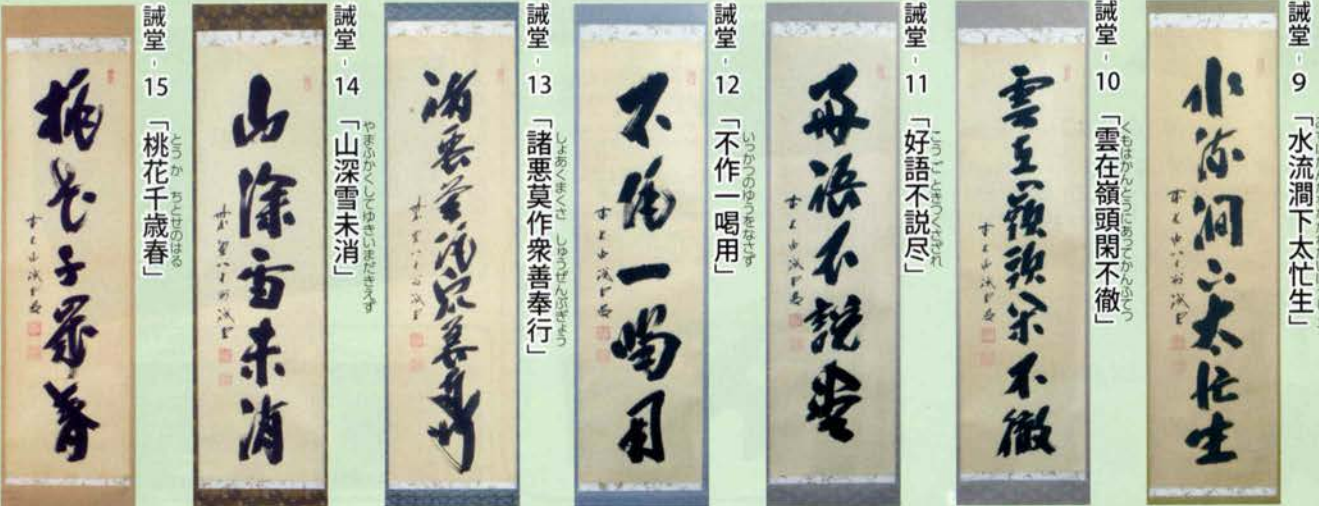 誡堂 - 9 「水流澗下太忙生」
水流澗下太忙生
誡堂 - 10 「雲在嶺頭閑不徹」
くもはかんとうにあってかんふてつ
雲在嶺頭閑不徹
誡堂 - 11 「好語不説尽」
こうごときつくさざれ
好語不説尽
誡堂 - 12 「不作一喝用」
いっかつのゆうをなさず
不作一喝用
誡堂 - 13 「諸悪莫作衆善奉行」
しょあくまくさ しゅうぜんぶぎょう
諸悪莫作衆善奉行
誡堂 - 14 「山深雪未消」
やまふかくしてゆきいまだきえず
山深雪未消
誡堂 - 15 「桃花千歳春」
とうか ちとせのはる
桃花千歳春